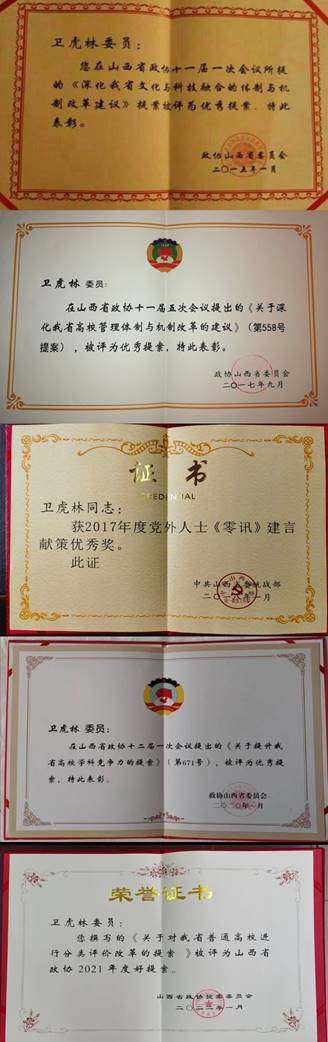 卫虎林委员：
您在山西省政协十一届一次会议所提
的《深化我省文化与科技融合的体制与机
制改革建议》提案被评为优秀提案，特此
表彰。
政协山西省委员会
二〇一五年一月
卫虎林 委员：
在山西省政协十一届五次会议提出的《关于深
化我省高校管理体制与机制改革的建议》（第558号
提案），被评为优秀提案，特此表彰。
政协山西省委员会
二〇一七年九月
证 书
CREDENTIAL
卫虎林同志：
获2017年度党外人士《零讯》建言
献策优秀奖。
此证
中共山西省委统战部
卫虎林 委员：
在山西省政协十二届一次会议提出的《关于提升我
省高校学科竞争力的提案》（第671号），被评为优秀提
案，特此表彰。
政协山西省委员会
二〇二〇年一月
荣誉证书
卫虎林委员：
您撰写的《关于对我省普通高校进
行分类评价改革的提案 》被评为山西省
政协 2021 年度好提案。
山西省政协提案委员会
二〇二二年一月